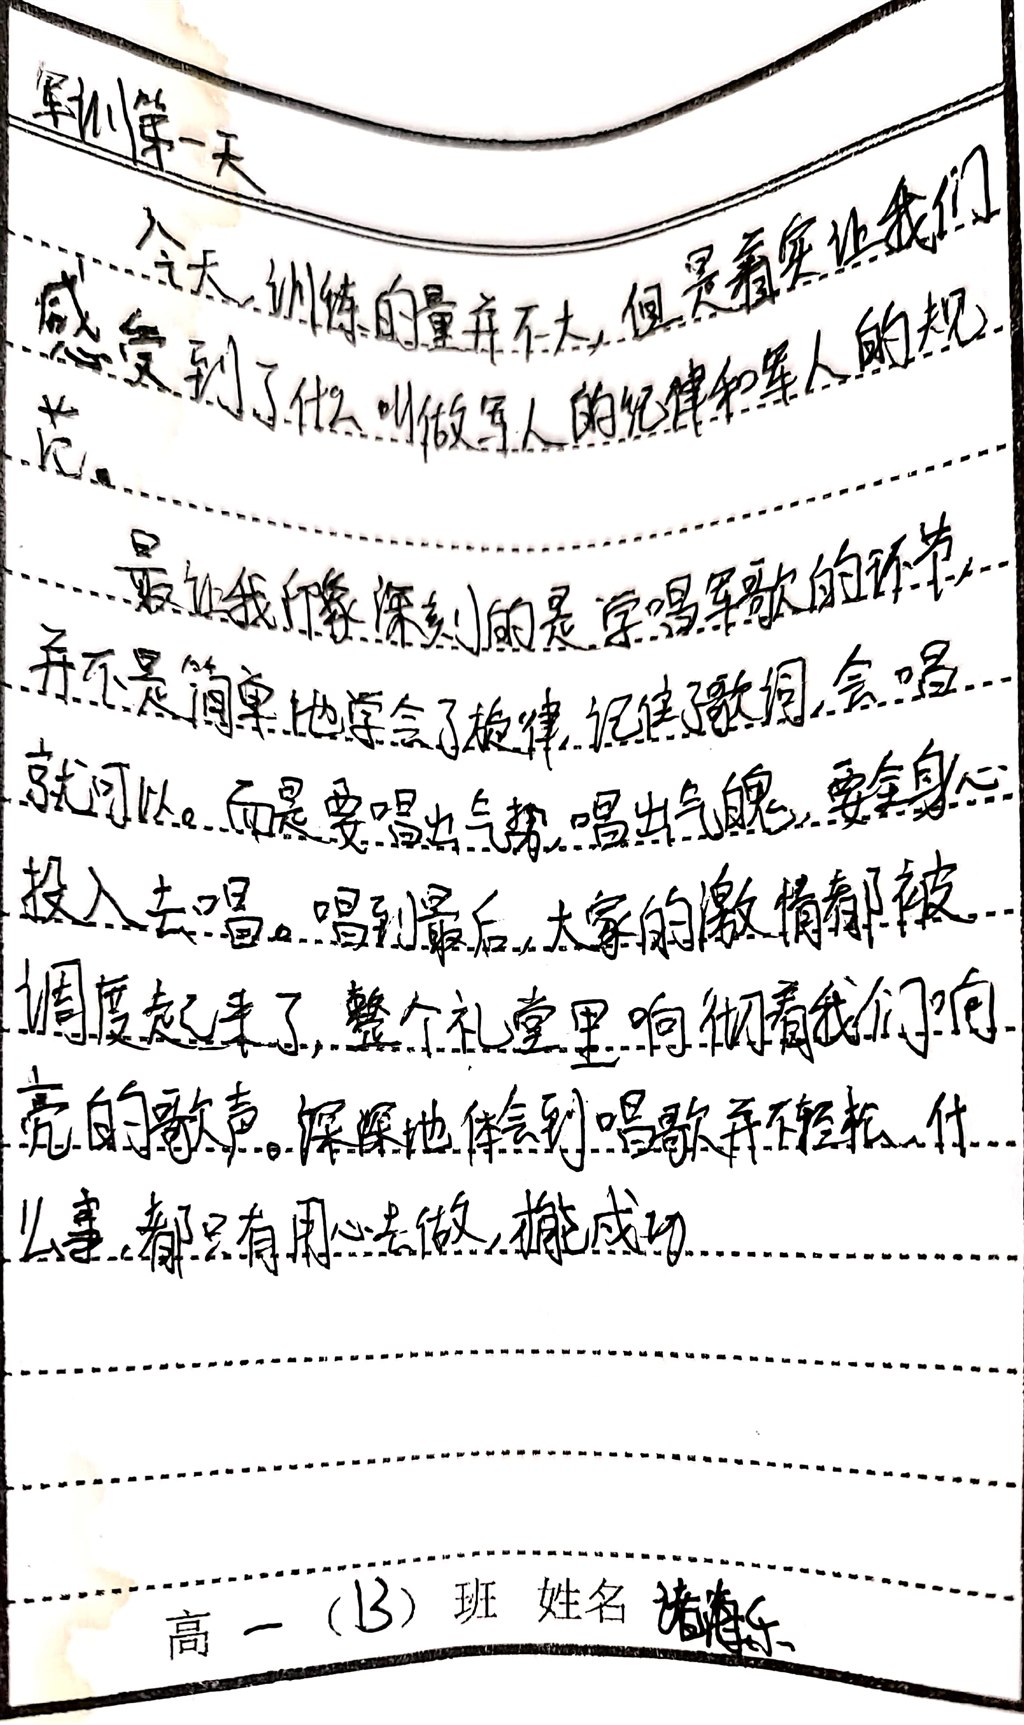 军训第一天
今天,训练的量并不大,但是着实让我们
感受到了什么叫做军人的纪律和军人的规
范。
最让我印象深刻的是学唱军歌的环节,
并不是简单地学会了旋律,记住了歌词,会唱
就可以。而是要唱出气势,唱出气魄,要全身心
投入去唱。唱到最后,大家的激情都被
调度起来了,整个礼堂里响彻着我们响
亮的歌声。深深地体会到唱歌并不轻松,什
么事,都只有用心去做,才能成功
高一(13)班 姓名 诸海乐